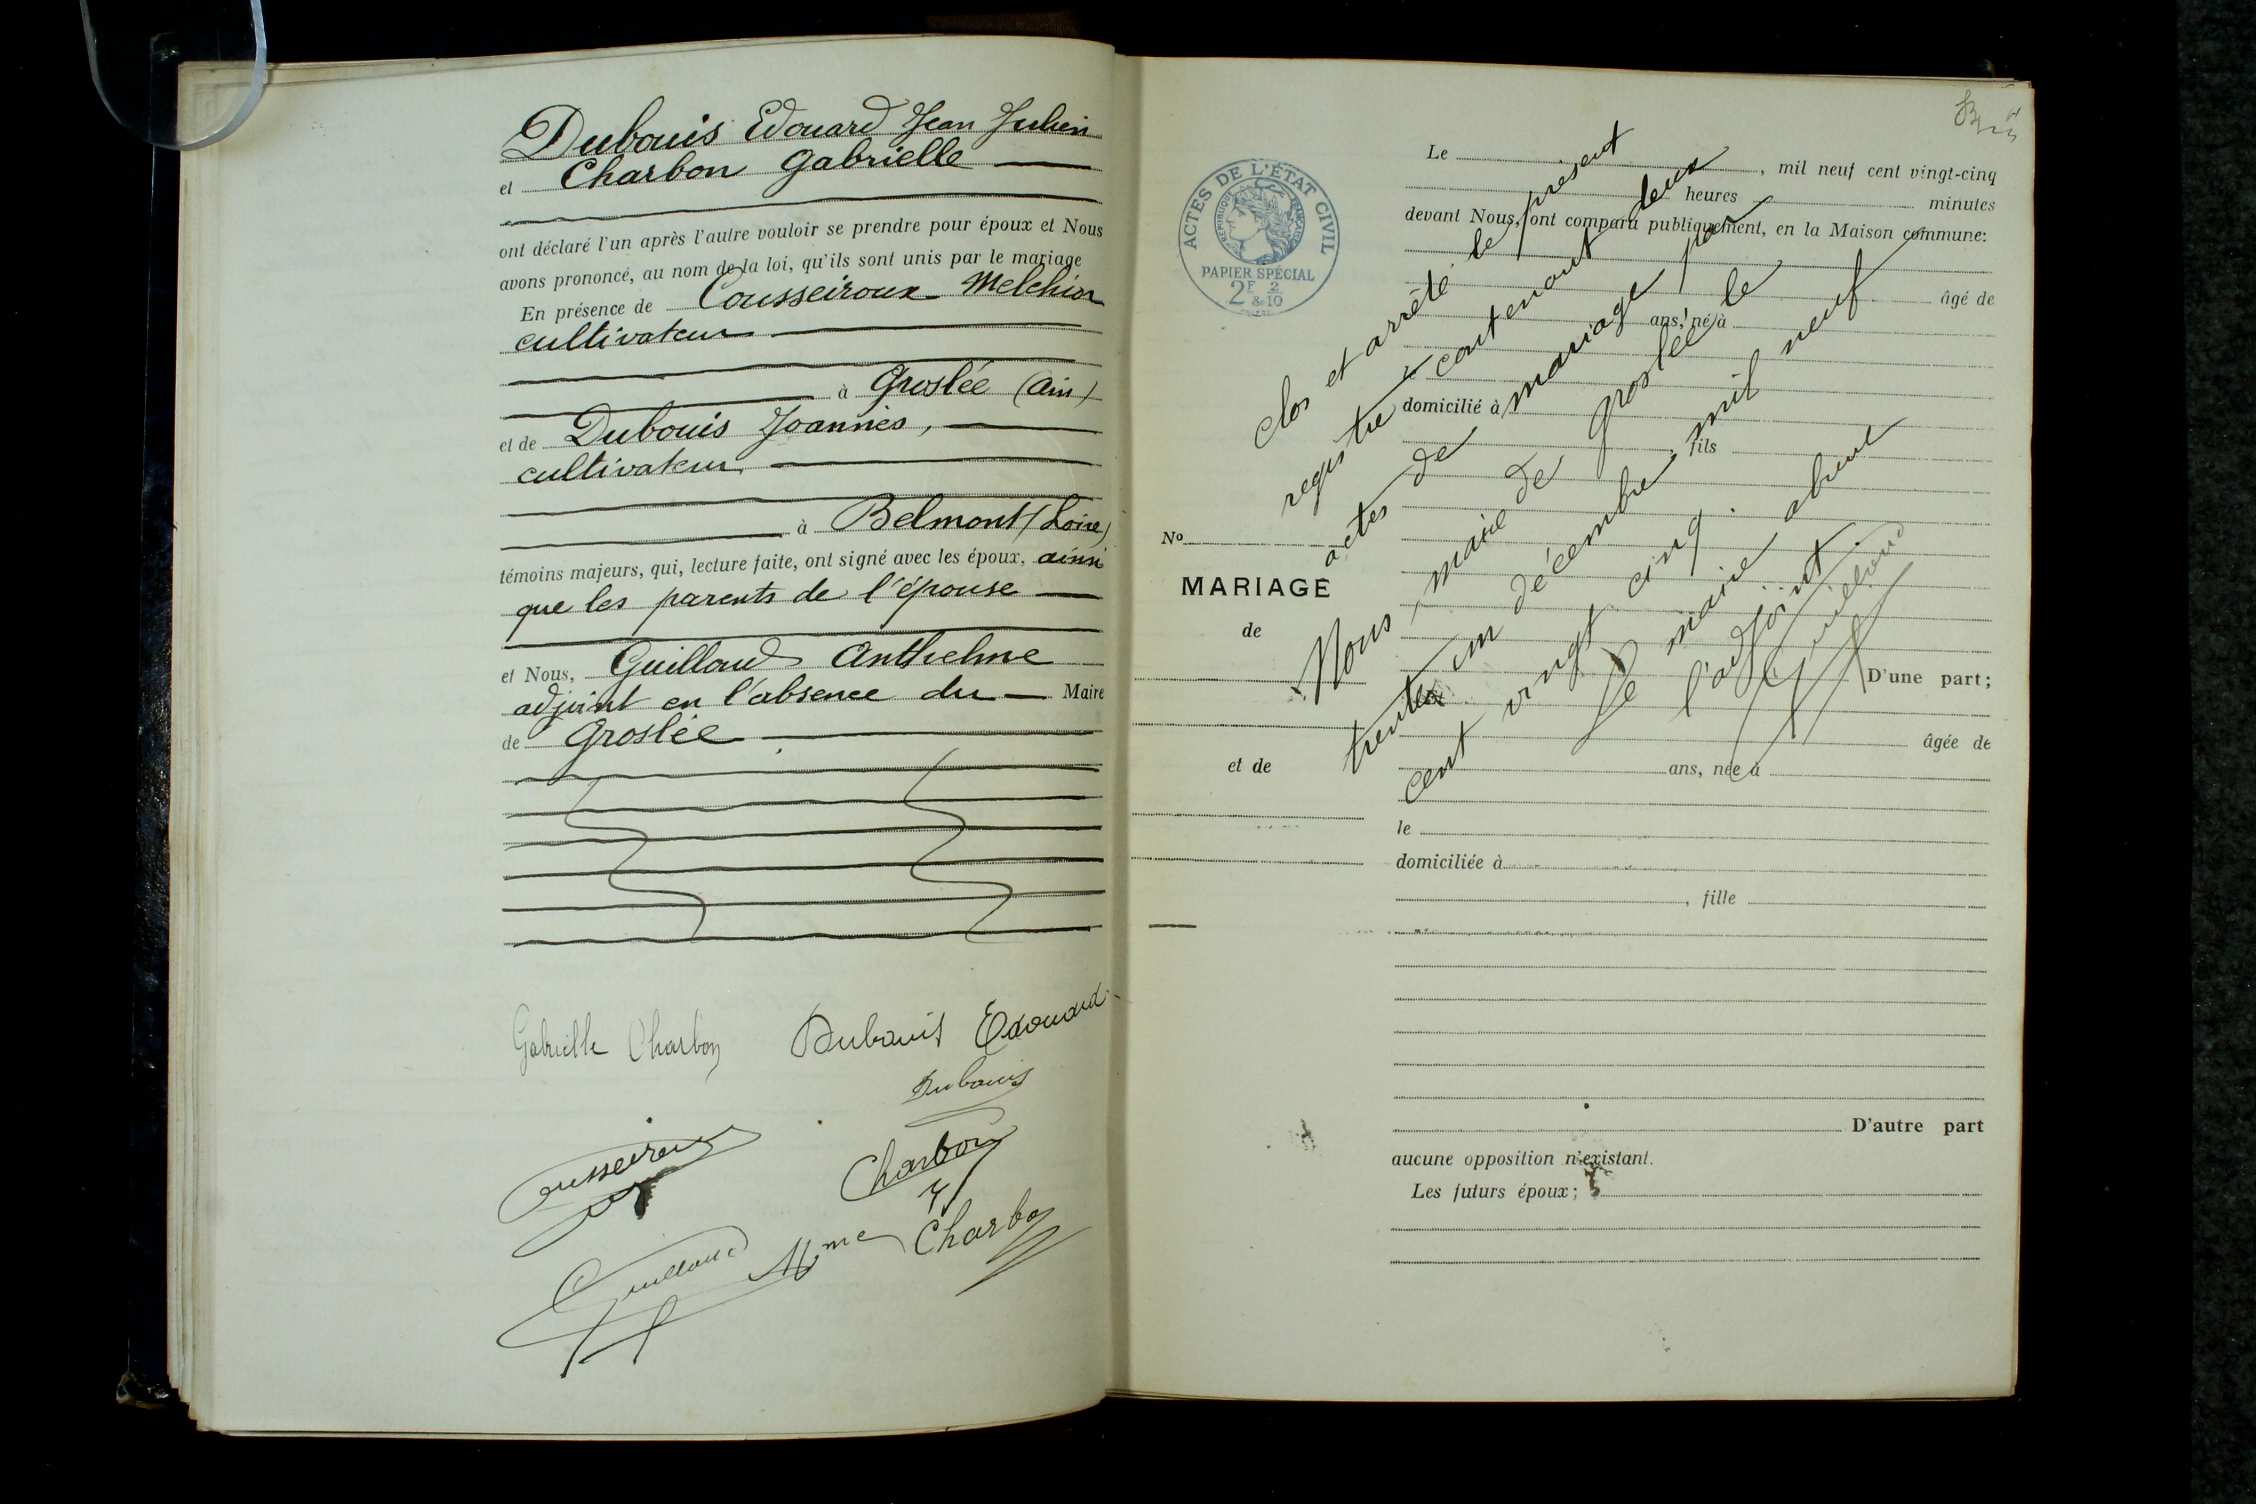 Dubouis Edouard Jean Julien
et Charbon Gabrielle
ont déclaré l'un après l'autre vouloir se prendre pour époux et Nous
avons prononcé, au nom de la loi, qu'ils sont unis par le mariage
En présence de Cousseiroux Melchior
cultivateur
à Groslée (Ain)
et de Dubouis Joannès,
cultivateur
à Belmont (Loire)
témoins majeurs, qui, lecture faite, ont signé avec les époux, ainsi
que les parents de l'épouse
et Nous, Guilloud Anthelme
adjoint en l'absence du Maire
de Groslée
Gabrielle Charbon Dubouis Edouard
Dubouis
Cousseiroux
Charbon
Guilloud Mme Charbon
ACTES DE L'ÉTAT CIVIL
RÉPUBLIQUE FRANÇAISE
PAPIER SPÉCIAL
2F & 2/10
Le , mil neuf cent vingt-cinq
heures minutes
devant Nous, ont comparu publiquement, en la Maison commune:
âgé de
ans, né à
domicilié à
fils
No
MARIAGE
de
D'une part;
âgée de
et de
ans, née à
le
domiciliée à
, fille
D'autre part
aucune opposition n'existant.
Les futurs époux;
Clos et arrêté le présent
registre contenant deux
actes de mariage par
Nous, maire de Groslée le
trente un décembre mil neuf
cent vingt cinq.
Le maire absent
l'adjoint.
Guilloud